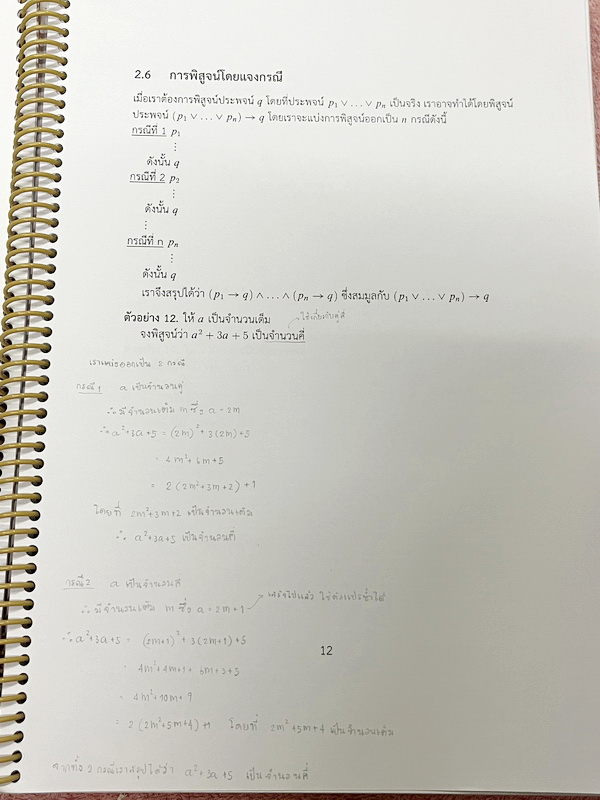 2.6 การพิสูจน์โดยแจงกรณี
เมื่อเราต้องการพิสูจน์ประพจน์ q โดยที่ประพจน์ p₁ ∨ … ∨ pₙ เป็นจริง เราอาจทำได้โดยพิสูจน์
ประพจน์ (p₁ ∨ … ∨ pₙ) → q โดยเราจะแบ่งการพิสูจน์ออกเป็น n กรณีดังนี้
กรณีที่ 1 p₁
⋮
ดังนั้น q
กรณีที่ 2 p₂
⋮
ดังนั้น q
⋮
กรณีที่ n pₙ
⋮
ดังนั้น q
เราจึงสรุปได้ว่า (p₁ → q) ∧ … ∧ (pₙ → q) ซึ่งสมมูลกับ (p₁ ∨ … ∨ pₙ) → q
ตัวอย่าง 12. ให้ a เป็นจำนวนเต็ม
จงพิสูจน์ว่า a² + 3a + 5 เป็นจำนวนคี่
เราแบ่งออกเป็น 2 กรณี
กรณี 1 a เป็นจำนวนคู่
∴ มีจำนวนเต็ม m ซึ่ง a = 2m
∴ a²+3a+5 = (2m)² + 3(2m)+5
= 4m²+6m+5
= 2(2m²+3m+2)+1
โดยที่ 2m²+3m+2 เป็นจำนวนเต็ม
∴ a²+3a+5 เป็นจำนวนคี่
กรณี 2 a เป็นจำนวนคี่
∴ มีจำนวนเต็ม m ซึ่ง a = 2m+1
∴ a²+3a+5 = (2m+1)² + 3(2m+1)+5
12
= 4m²+4m+1+6m+3+5
= 4m²+10m+9
= 2(2m²+5m+4)+1 โดยที่ 2m²+5m+4 เป็นจำนวนเต็ม
จากทั้ง 2 กรณีเราสรุปได้ว่า a²+3a+5 เป็นจำนวนคี่